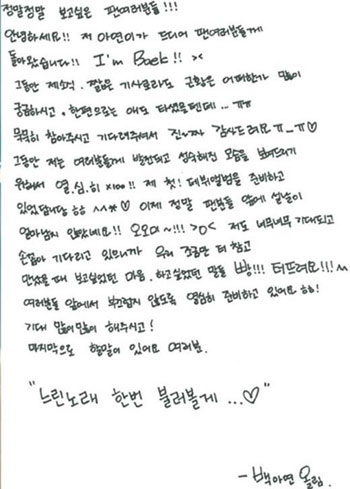 정말정말 보고싶은 팬여러분들!!!
안녕하세요!! 저 아연이가 드디어 팬여러분들께
돌아왔습니다!! I'm Baek!! ><
그동안 제소식. 짧은 기사로라도 근황은 어떠한가 많이
궁금하시고, 한편으로는 애도 타셨을텐데... ㅠㅠ
묵묵히 참아주시고 기다려주셔서 진~짜 감사드려요ㅠ_ㅠ♡
그동안 저는 여러분들께 발전되고 성숙해진 모습을 보여드리기
위해서 열.심.히 x100!! 제 첫! 데뷔앨범을 준비하고
있었답니당 ㅎㅎ ^^* ♡ 이제 정말 팬분들 앞에 설날이
얼마남지 않았네요!! 오오예~!!! >0< 저도 너무너무 기대되고
손꼽아 기다리고 있으니까 우리 조금만 더 참고
만났을때 보고싶었던 마음, 하고싶었던 말들 빵!!! 터뜨려요!!!~
여러분들 앞에서 부끄럽지 않도록 열심히 준비하고 있어요 ㅎㅎ!
기대 많이많이 해주시고!
마지막으로 할말이 있어요 여러분.
"느린노래 한번 불러볼게 ...♡"
- 백아연 올림.